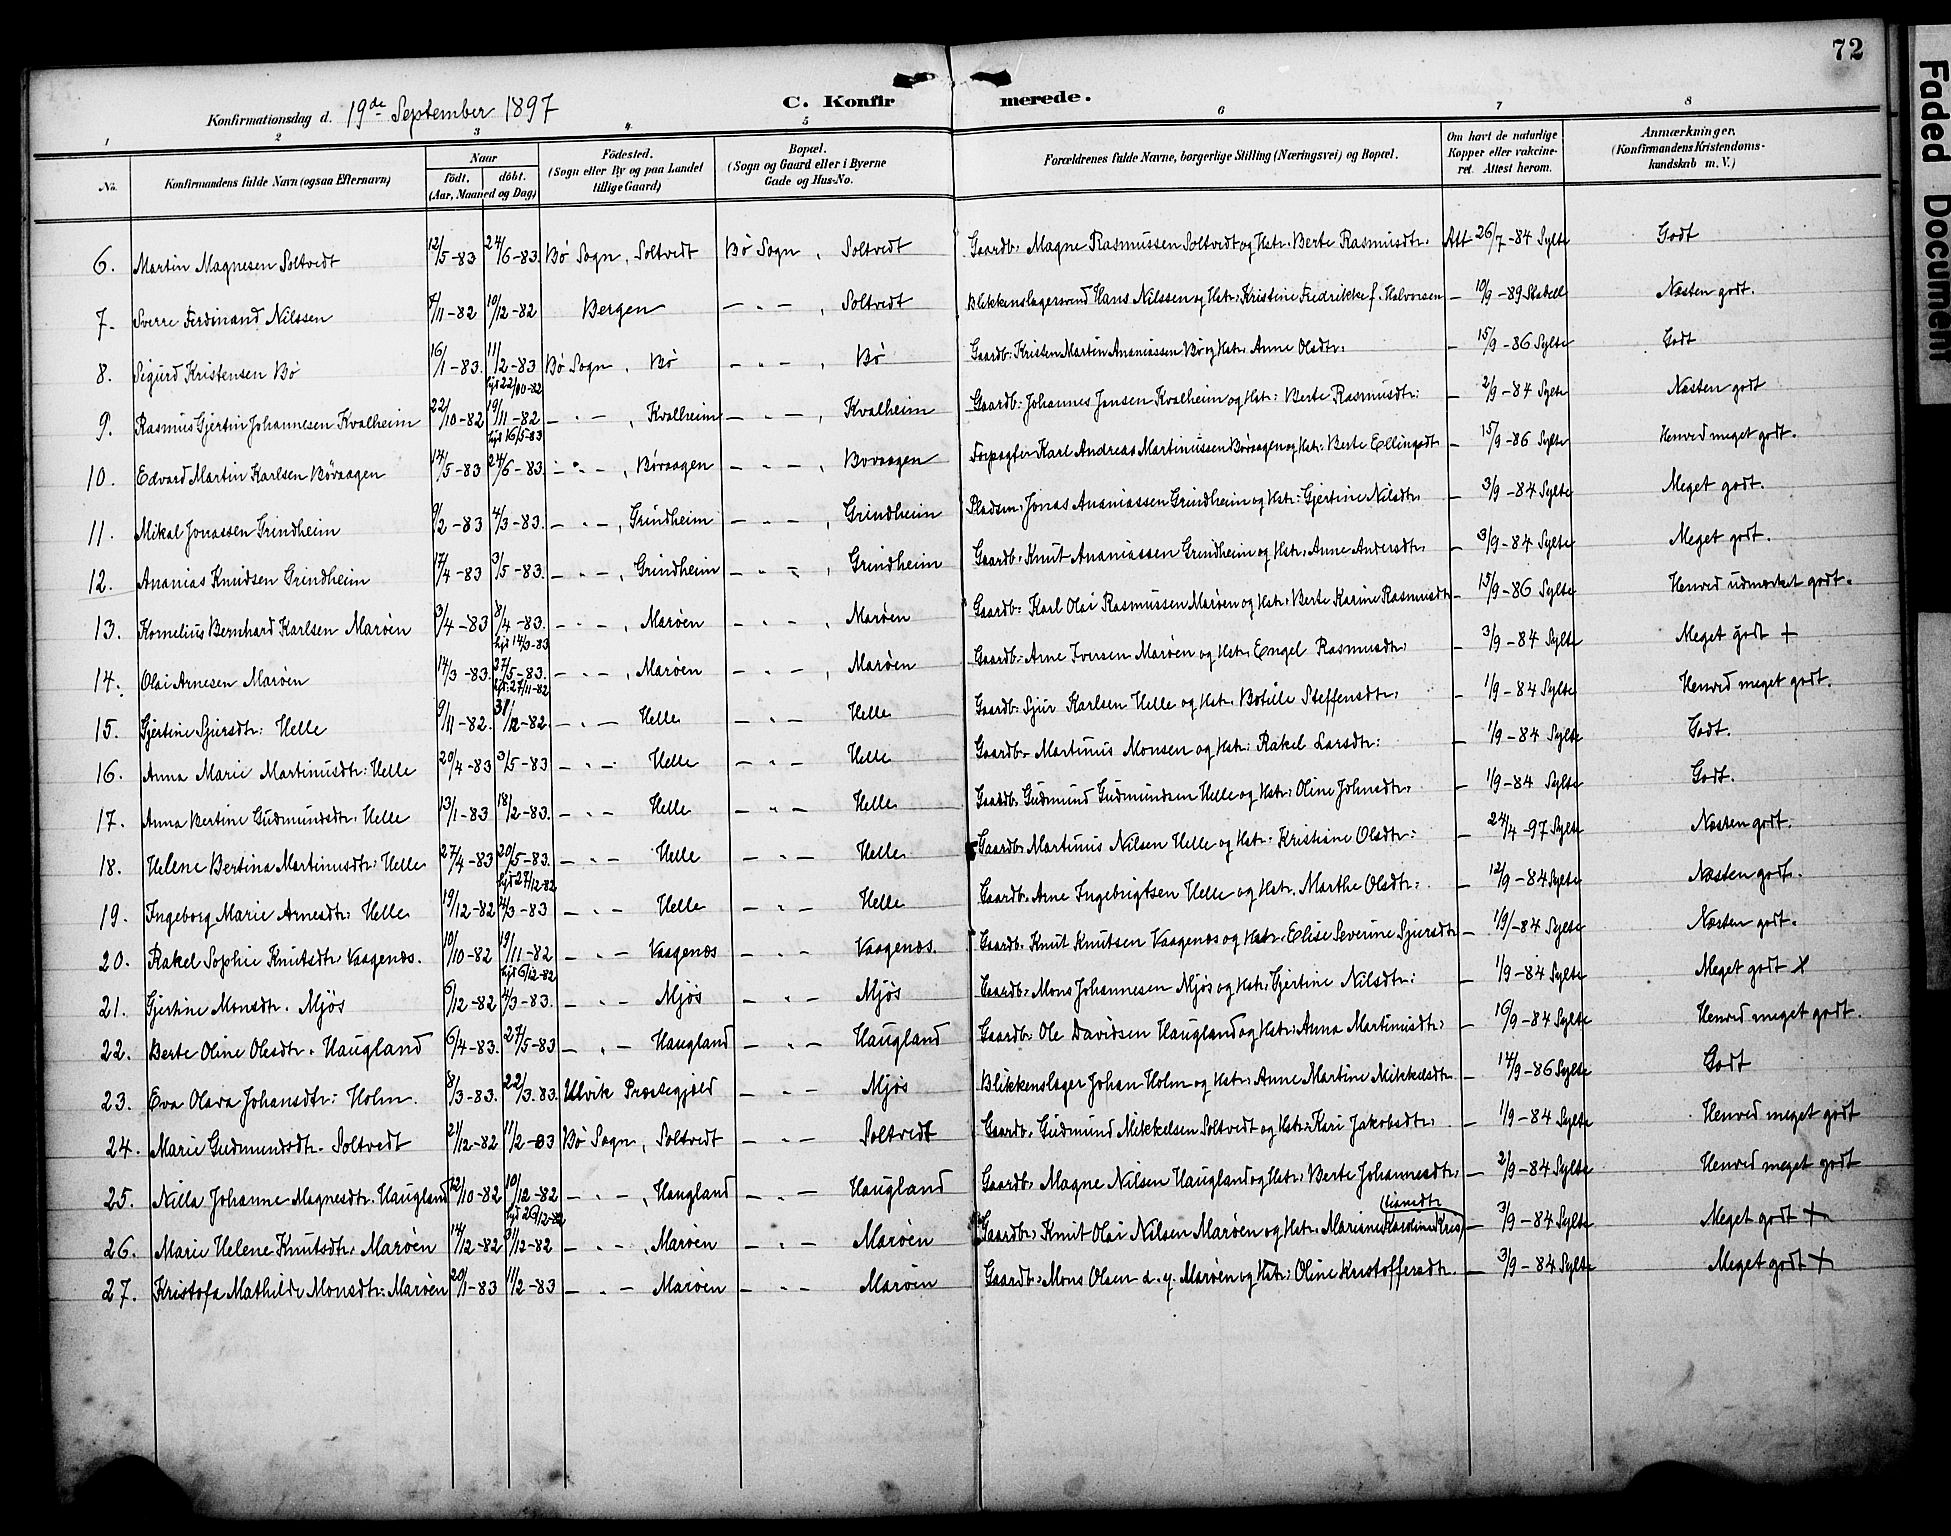 72
Konfirmationsdag d. 19de September 1897
C. Konfirmerede.
1 2 3 4 5 6 7 8
No. Konfirmandens fulde Navn (ogsaa Efternavn) Naar födt. döbt. (Aar, Maaned og Dag) Födested. (Sogn eller By og paa Landet tillige Gaard) Bopæl. (Sogn og Gaard eller i Byerne Gade og Hus-No. Forældrenes fulde Navne, borgerlige Stilling (Næringsvei) og Bopæl. Om havt de naturlige Kopper eller vakcineret. Attest herom. Anmærkninger, (Konfirmandens Kristendomskundskab m. V.)
6. Martin Magnesen Soltvedt 12/5-83 24/6-83. Bö Sogn, Soltvedt Bö Sogn, Soltvedt Gaardb. Magne Rasmussen Soltvedt og Hstr. Berte Rasmusdtr. Att 26/7-84 Sylte Godt
7. Sverre Ferdinand Nilssen 7/11-82 10/12-82 Bergen — " — , Soltvedt Blikkenslagersvend Hans Nilssen og Hstr. Kristine Fredrikke f. Halvorsen — 10/9-89 Stabell Næsten godt.
8. Sigurd Kristensen Bö 16/1-83. 11/2-83 Bö Sogn, Bö — " — , Bö Gaardb. Kristen Martin Ananiassen Bö og Hstr. Anne Olsdtr. — 15/9-86 Sylte Godt
9. Rasmus Gjertin Johannesen Kvalheim 22/10-82 hjd 22/10-82 19/11-82 — " — , Kvalheim — " — , Kvalheim Gaardb. Johannes Jensen Kvalheim og Hstr: Berte Rasmusdtr: — 2/9-84 Sylte Næsten godt
10. Edvard Martin Karlsen Bövaagen 14/5-83 hjd 16/5-83 24/6-83. — " — , Bövaagen — " — , Bovaagen Forpagter Karl Andreas Martinussen Bövaagen og Hstr. Berte Ellingsdt. — 15/9-86 Sylte Henved meget godt.
11. Mikal Jonassen Grindheim 9/2-83 4/3-83. — " — , Grindheim — " — , Grindheim Pladsm. Jonas Ananiassen Grindheim og Hstr: Gjertine Nilsdtr. — 3/9-84 Sylte Meget godt.
12. Ananias Knudsen Grindheim 17/4-83 3/5-83. — " — , Grindheim — " — , Grindheim Gaardb. Knut Ananiassen Grindheim og Hstr. Anne Andersdtr. — 3/9-84 Sylte Meget godt.
13. Kornelius Bernhard Karlsen Maröen 3/4-83 8/4-83. — " — , Maröen — " — , Maröen Gaardb. Karl Olai Rasmussen Maröen og Hstr. Berte Karine Rasmusdtr — 15/9-86 Sylte Henved udmærket godt.
14. Olai Arnesen Maröen 14/3-83. hjd 14/3-83 27/5-83. — " — , Maröen — " — , Maröen Gaardb. Arne Iversen Maröen og Hstr. Engel Rasmusdtr. — 3/9-84 Sylte Meget godt +
15. Gjertine Sjursdtr: Helle 9/11-82. hjd. 27/11-82 31/12-82. — " — Helle — " — Helle Gaardb. Sjur Karlsen Helle og Hstr. Botille Steffensdtr. — 1/9-84 Sylte Henved meget godt.
16. Anna Marie Martinusdtr: Helle 20/4-83 3/5-83 — " — Helle — " — Helle Gaardb. Martinus Monsen og Hstr: Rakel Larsdtr: — 1/9-84 Sylte Godt.
17. Anna Bertine Gudmundsdtr. Helle 13/1-83 18/2-83. — " — Helle — " — Helle Gaardb. Gudmund Gudmundsen Helle og Hstr: Oline Johnsdtr. — 1/9-84 Sylte Godt.
18. Helene Bertina Martinusdtr: Helle 27/4-83 20/5-83. — " — Helle — " — Helle Gaardb. Martinus Nilsen Helle og Hstr: Kristiane Olsdtr: — 24/4-97 Sylte Næsten godt.
19. Ingeborg Marie Arnesdtr. Helle 19/12-82 hjd 27/12-82 4/3-83 — " — Helle — " — Helle Gaardb. Arne Ingebrigtsen Helle og Hstr. Marthe Olsdtr: — 12/9-84 Sylte Næsten godt.
20. Rakel Sophie Knutsdtr Vaagenæs. 10/10-82 19/11-82 — " — Vaagenæs — " — Vaagenæs. Gaardb. Knut Knutsen Vaagenæs og Hstr. Elise Severine Sjursdtr — 1/9-84 Sylte Næsten godt.
21. Gjertine Monsdtr. Mjös 6/12-82 hjd 6/12-82 4/3-83. — " — Mjös — " — Mjös Gaardb. Mons Johannesen Mjös og Hstr. Gjertine Nilsdtr: — 1/9-84 Sylte Meget godt +
22. Berte Oline Olsdtr. Haugland 6/4-83. 27/5-83 — " — Haugland — " — Haugland Gaardb. Ole Davidsen Haugland og Hstr: Anna Martinusdtr: — 16/9-84 Sylte Henved meget godt.
23. Eva Olava Johansdtr: Holm. 8/3-83. 22/3.83. Ulvik Præstegjæld — " — Mjös Blikkenslager Johan Holm og Hstr: Anne Martine Mikkelsdtr — 14/9-86 Sylte Godt
24. Marie Gudmundsdtr. Soltvedt 21/12-82 11/2-83 Bö Sogn, Soltvedt — " — Soltvedt Gaardb. Gudmund Mikkelsen Soltvedt og Hstr. Kari Jakobsdtr. — 1/9-84 Sylte Henved meget godt
25. Nilla Johanne Magnesdtr. Haugland 12/10-82 10/12-82 — " — , Haugland — " — Haugland Gaardb. Magne Nilsen Haugland og Hstr. Berte Johannesdtr. — 2/9-84 Sylte Henved meget godt
26. Marie Helene Knutsdtr. Maröen 14/12-82 hjd 26/12-82 31/12-82 — " — , Maröen — " — Maröen Gaardb. Knut Olai Nilsen Maröen og Hstr. Mariane Karoline Kristiansdtr — 3/9-84 Sylte Meget godt +
27. Kristofa Mathilde Monsdtr: Maröen 20/1-83 11/2-83 — " — Maröen — " — Maröen Gaardb. Mons Olsen d. y. Maröen og Hstr: Oline Kristoffersdtr. — 3/9-84 Sylte Meget godt +
Faded Document